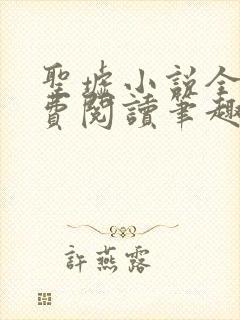 聖墟小說全
費閱讀筆趣
許燕露